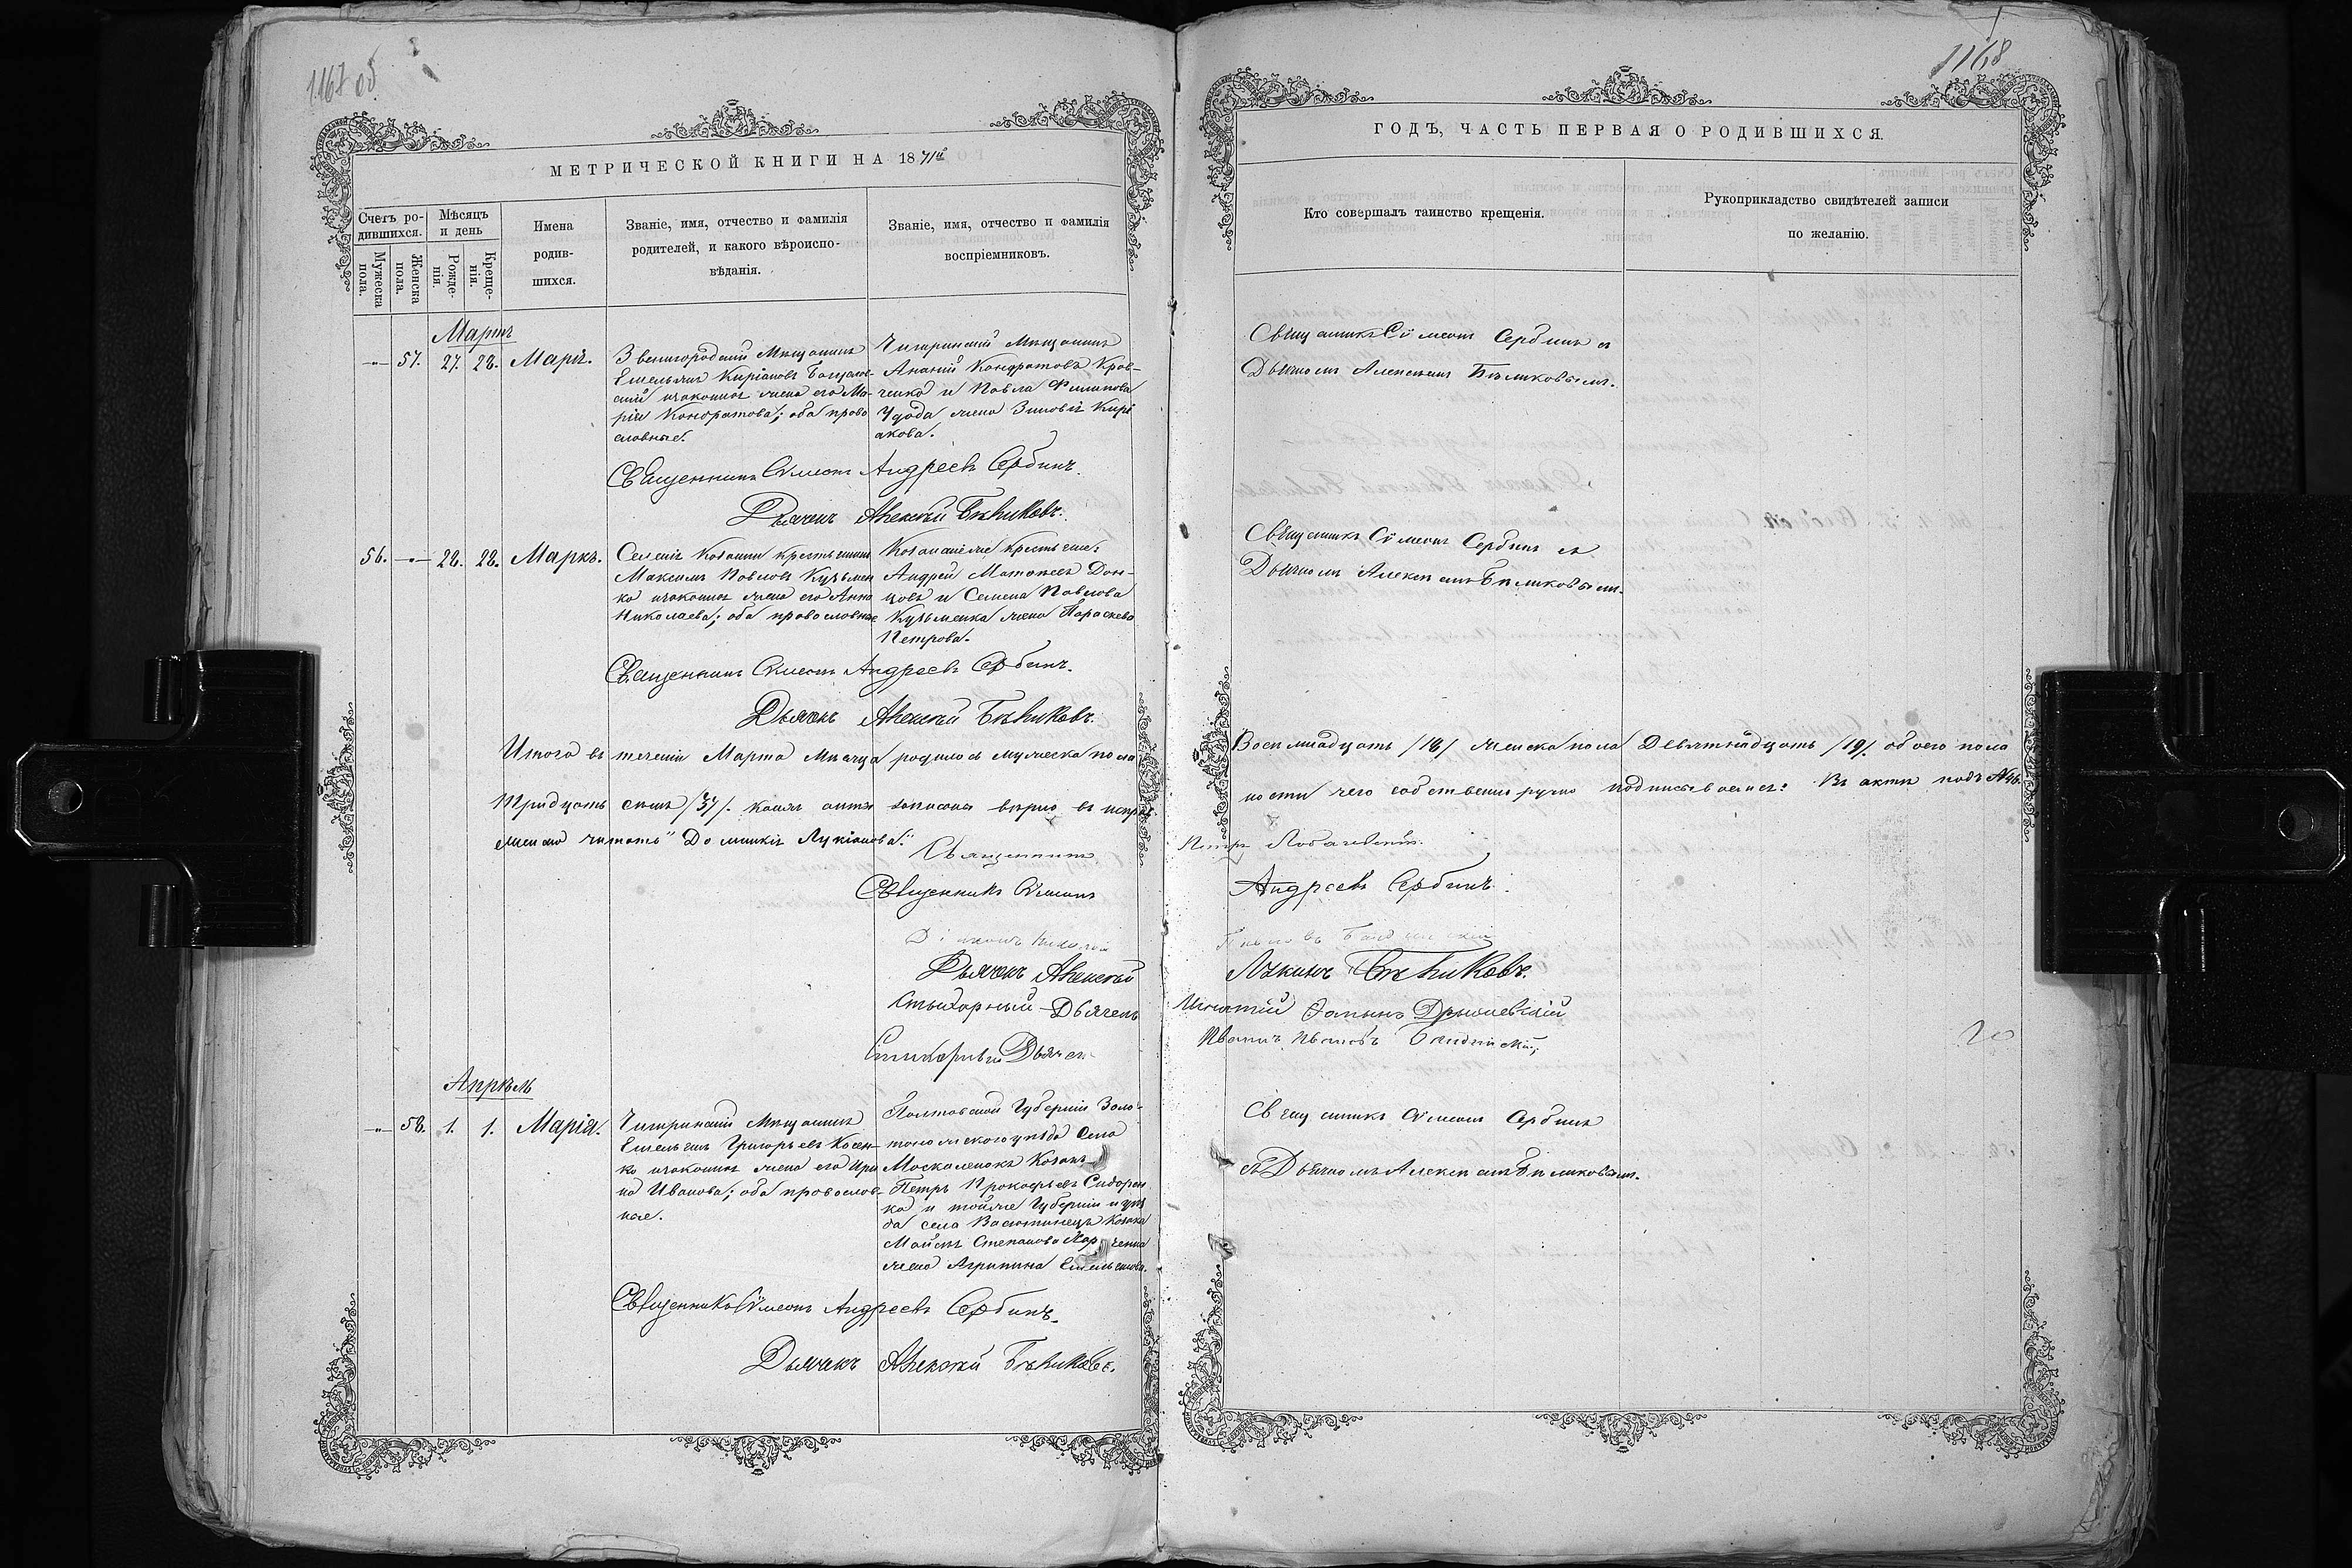 1168
МЕТРИЧЕСКОЙ КНИГИ НА 1871й
Счетъ ро-
дившихся.
Мужеска
пола.
Женска
пола.
Мѣсяцъ
и день
Рожде-
нія.
Креще-
нія.
Имена
родив-
шихся.
Званіе, имя, отчество и фамилія
родителей, и какого вѣроиспо-
вѣданія.
Званіе, имя, отчество и фамилія
воспріемниковъ.
Мартъ
57. 27. 28. Марія.
Звенигородскій Мещанинъ
Емельянъ Киріаковъ
законная жена его Ма-
рія Кондратова; оба право
славные.
Чигиринскій Мещанинъ
Ананій Кондратовъ Крав-
ченко и Павла Филипова
Удода жена Зиновія Кирі
акова.
Священникъ Симеонъ Андреевъ Сербинъ.
Дьячекъ Алексѣй Бѣликовъ.
56. 28. 28. Маркъ.
Селенія крестьянинъ
Максимъ Павловъ Кузьмен
ко законная жена его Анна
Николаева; оба православные
крестьяне:
Андрей Матвеевъ Дон-
цовъ и Семена Павлова
Кузьменка жена Параскева
Петрова.
Священникъ Симеонъ Андреевъ Сербинъ.
Дьячекъ Алексѣй Бѣликовъ.
Итого въ теченіи Марта Мѣсяца родилось мужеска пола
Тридцать семь /37/. каковъ актъ записанъ вѣрно въ
читать "Домникія Лукіанова."
Священникъ
Священникъ Симеонъ
Діаконъ Николай
Дьячекъ Алексѣй
Стихарный Дьячекъ
Стихарный Дьячек
Апрѣль
58. 1. 1. Марія.
Чигиринскій Мещанинъ
Емельянъ Григорьевъ Косен-
ко законная жена его Ири
на Иванова; оба православ-
ные.
Полтавской Губерніи Золо-
тоношскаго уѣзда Села
Москаленокъ Козакъ
Петръ Прокофьевъ Сидорен
ко и тойже Губерніи и уѣз
да села Васютинецъ козака
Степанова
жена Агрипина Емельянова.
Священникъ Симеонъ Андреевъ Сербинъ.
Дьячекъ Алексѣй Бѣликовъ.
ГОДЪ, ЧАСТЬ ПЕРВАЯ О РОДИВШИХСЯ.
Кто совершалъ таинство крещенія.
Рукоприкладство свидѣтелей записи
по желанію.
Священникъ Симеонъ Сербинъ съ
Дьячкомъ Алексѣемъ Бѣликовымъ.
Священникъ Симеонъ Сербинъ съ
Дьячкомъ Алексѣемъ Бѣликовымъ.
Восемнадцать /18/ женска пола Девятнадцать /19/. обоего пола
ности чего собственноручно подписываемся: Въ актѣ подъ
Петръ Лобачевскій.
Андреевъ Сербинъ.
Лукинъ Бѣликовъ.
Игнатій
Иванъ Ивановъ
20
Священникъ Симеонъ Сербинъ
съ Дьячкомъ Алексѣемъ Бѣликовымъ.